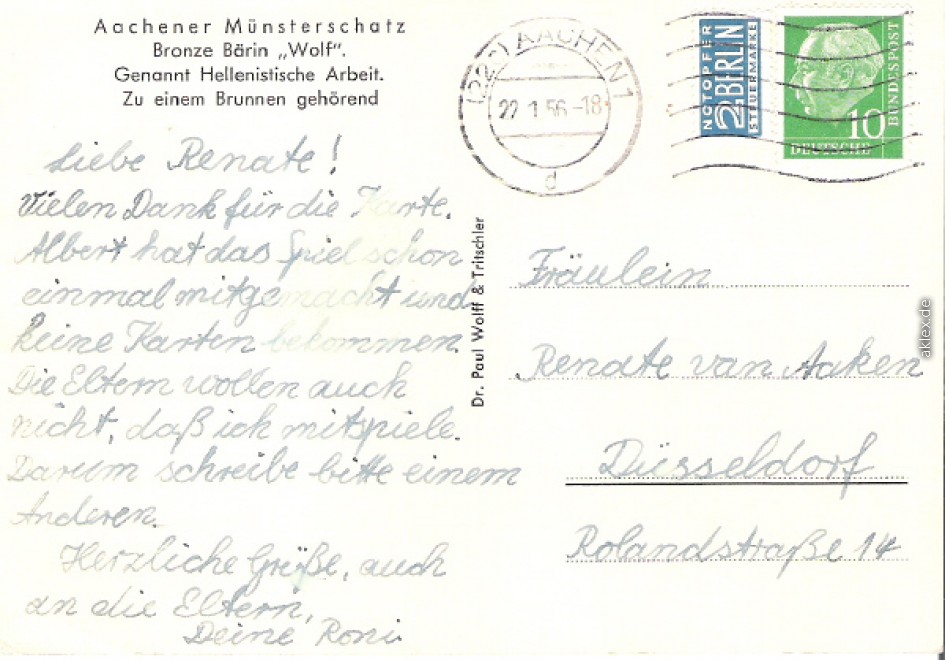 Aachener Münsterschatz
Bronze Bärin „Wolf“.
Genannt Hellenistische Arbeit.
Zu einem Brunnen gehörend
(22c) AACHEN 1
22.1.56.-18
d
NOTOPFER
2 BERLIN
STEUERMARKE
DEUTSCHE
BUNDESPOST
10
Liebe Renate!
Vielen Dank für die Karte.
Albert hat das Spiel schon
einmal mitgemacht und
keine Karten bekommen.
Die Eltern wollen auch
nicht, daß ich mitspiele.
Darum schreibe bitte einem
Anderen.
Herzliche Grüße, auch
an die Eltern,
Deine Roni
Dr. Paul Wolff & Tritschler
Fräulein
Renate van Aaken
Düsseldorf
Rolandstraße 14
aklex.de